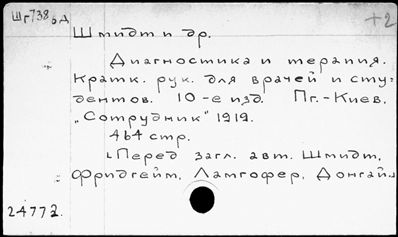 Шг738бд
+2
Шмидт и др.
Диагностика и терапия.
Кратк. рук. для врачей и сту-
дентов. 10-е изд. Пг.-Киев.
„Сотрудник" 1919.
464 стр.
Перед загл. авт. Шмидт,
Фридгейм, Ламгофер, Донгай...
24772.